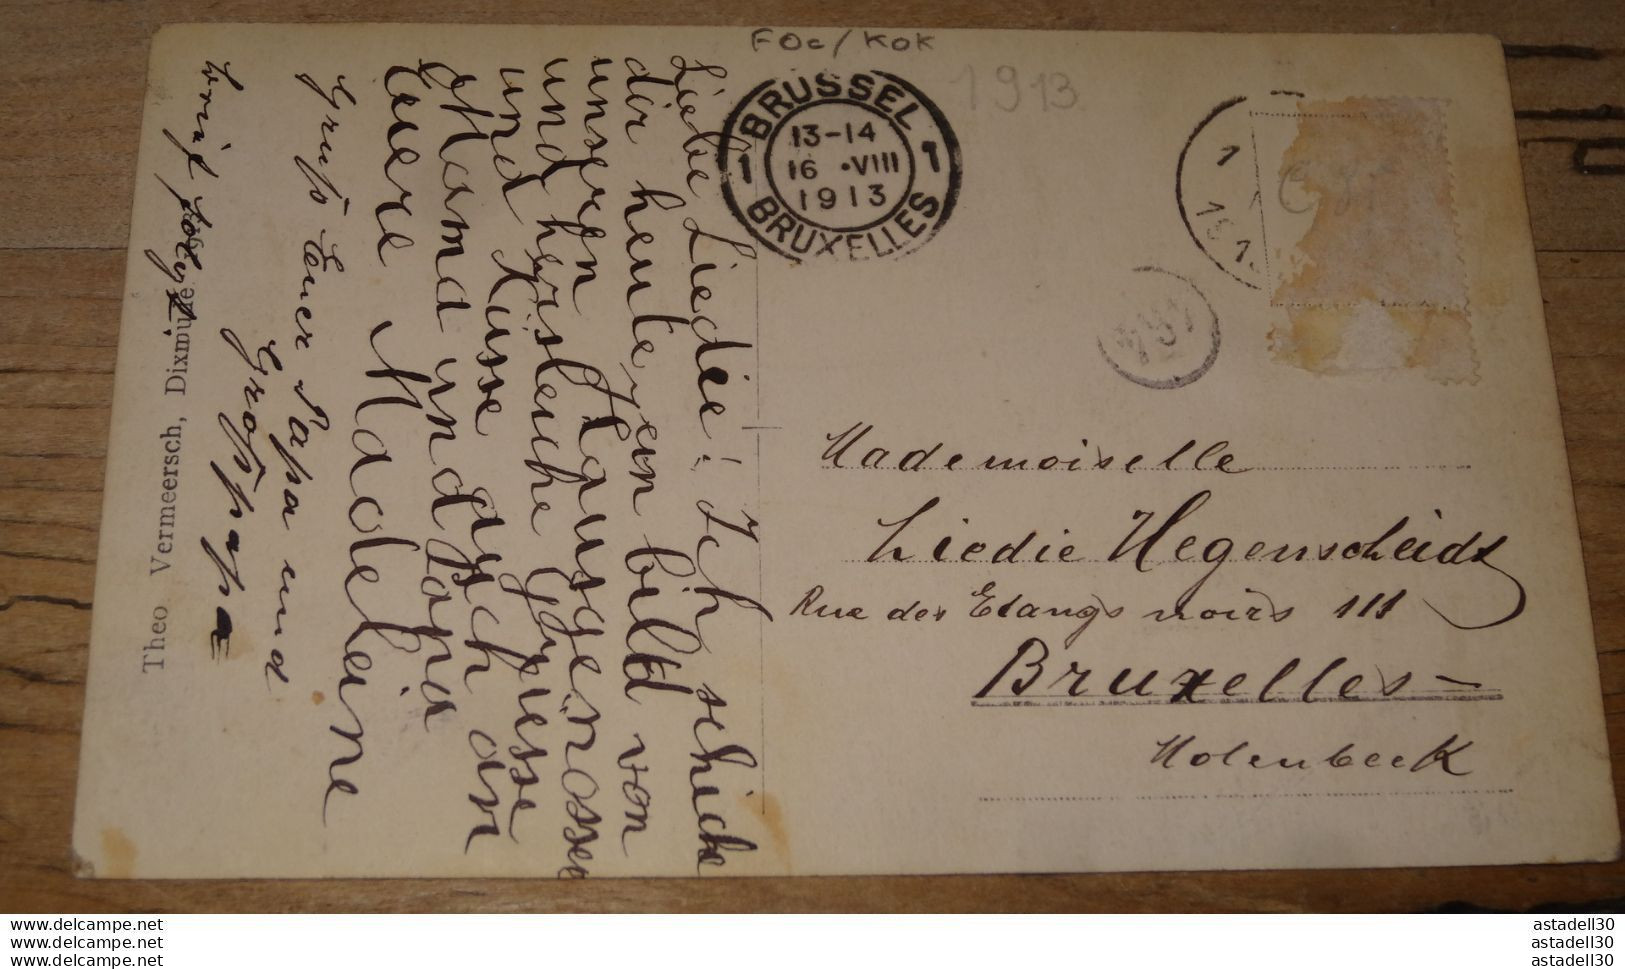 FOc/KOK
1913
BRUSSEL
1 1
13-14
16 •VIII
1913
BRUXELLES
Liebe Liedie! Ich schicke
dir heute jein bild von
unseren Hausgenossen
und herzleiche Grüsse
und Küsse auch an
Mama und Papa
Euere Madeleine
Gruß Euer Papa und
Großpapa
brief folgt
Theo Vermeersch, Dixmude
Mademoiselle
Liedie Hegenscheidt
Rue des Etangs noirs 111
Bruxelles -
Molenbeek
www.delcampe.net
www.delcampe.net
www.delcampe.net
astadell30
astadell30
astadell30